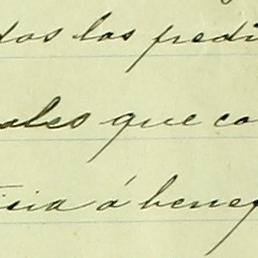 dos los pedi
ales que co
isia á benef